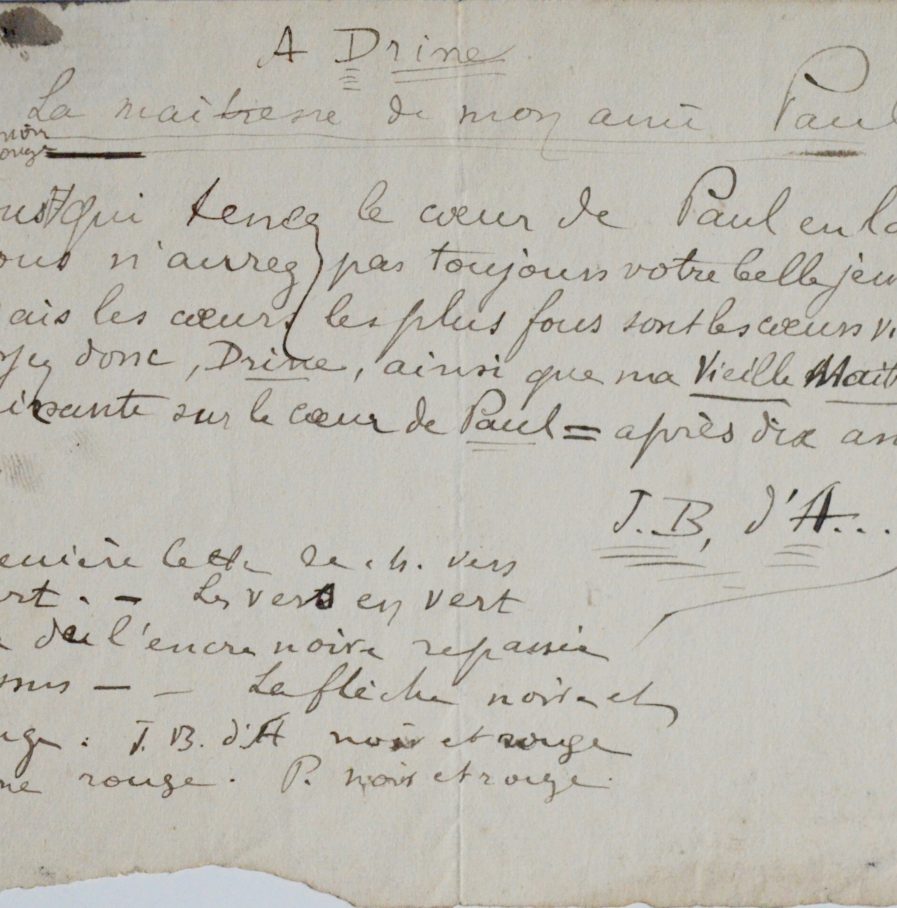 A Drine
La maîtresse de mon ami Paul
noir
rouge
qui tenez le cœur de Paul en la
ous n'aurez pas toujours votre belle jeu
ais les cœurs les plus fous sont les cœurs vi
donc, Drine, ainsi que ma Vieille Mait
sur le cœur de Paul = après dix an
J. B. d'A...
emière lettre de ch. vers
ert. - Les vers en vert
de l'encre noire repassée
ssus - - La flèche noire et
uge : J. B. d'A noir et rouge
ne rouge. P. noir et rouge.